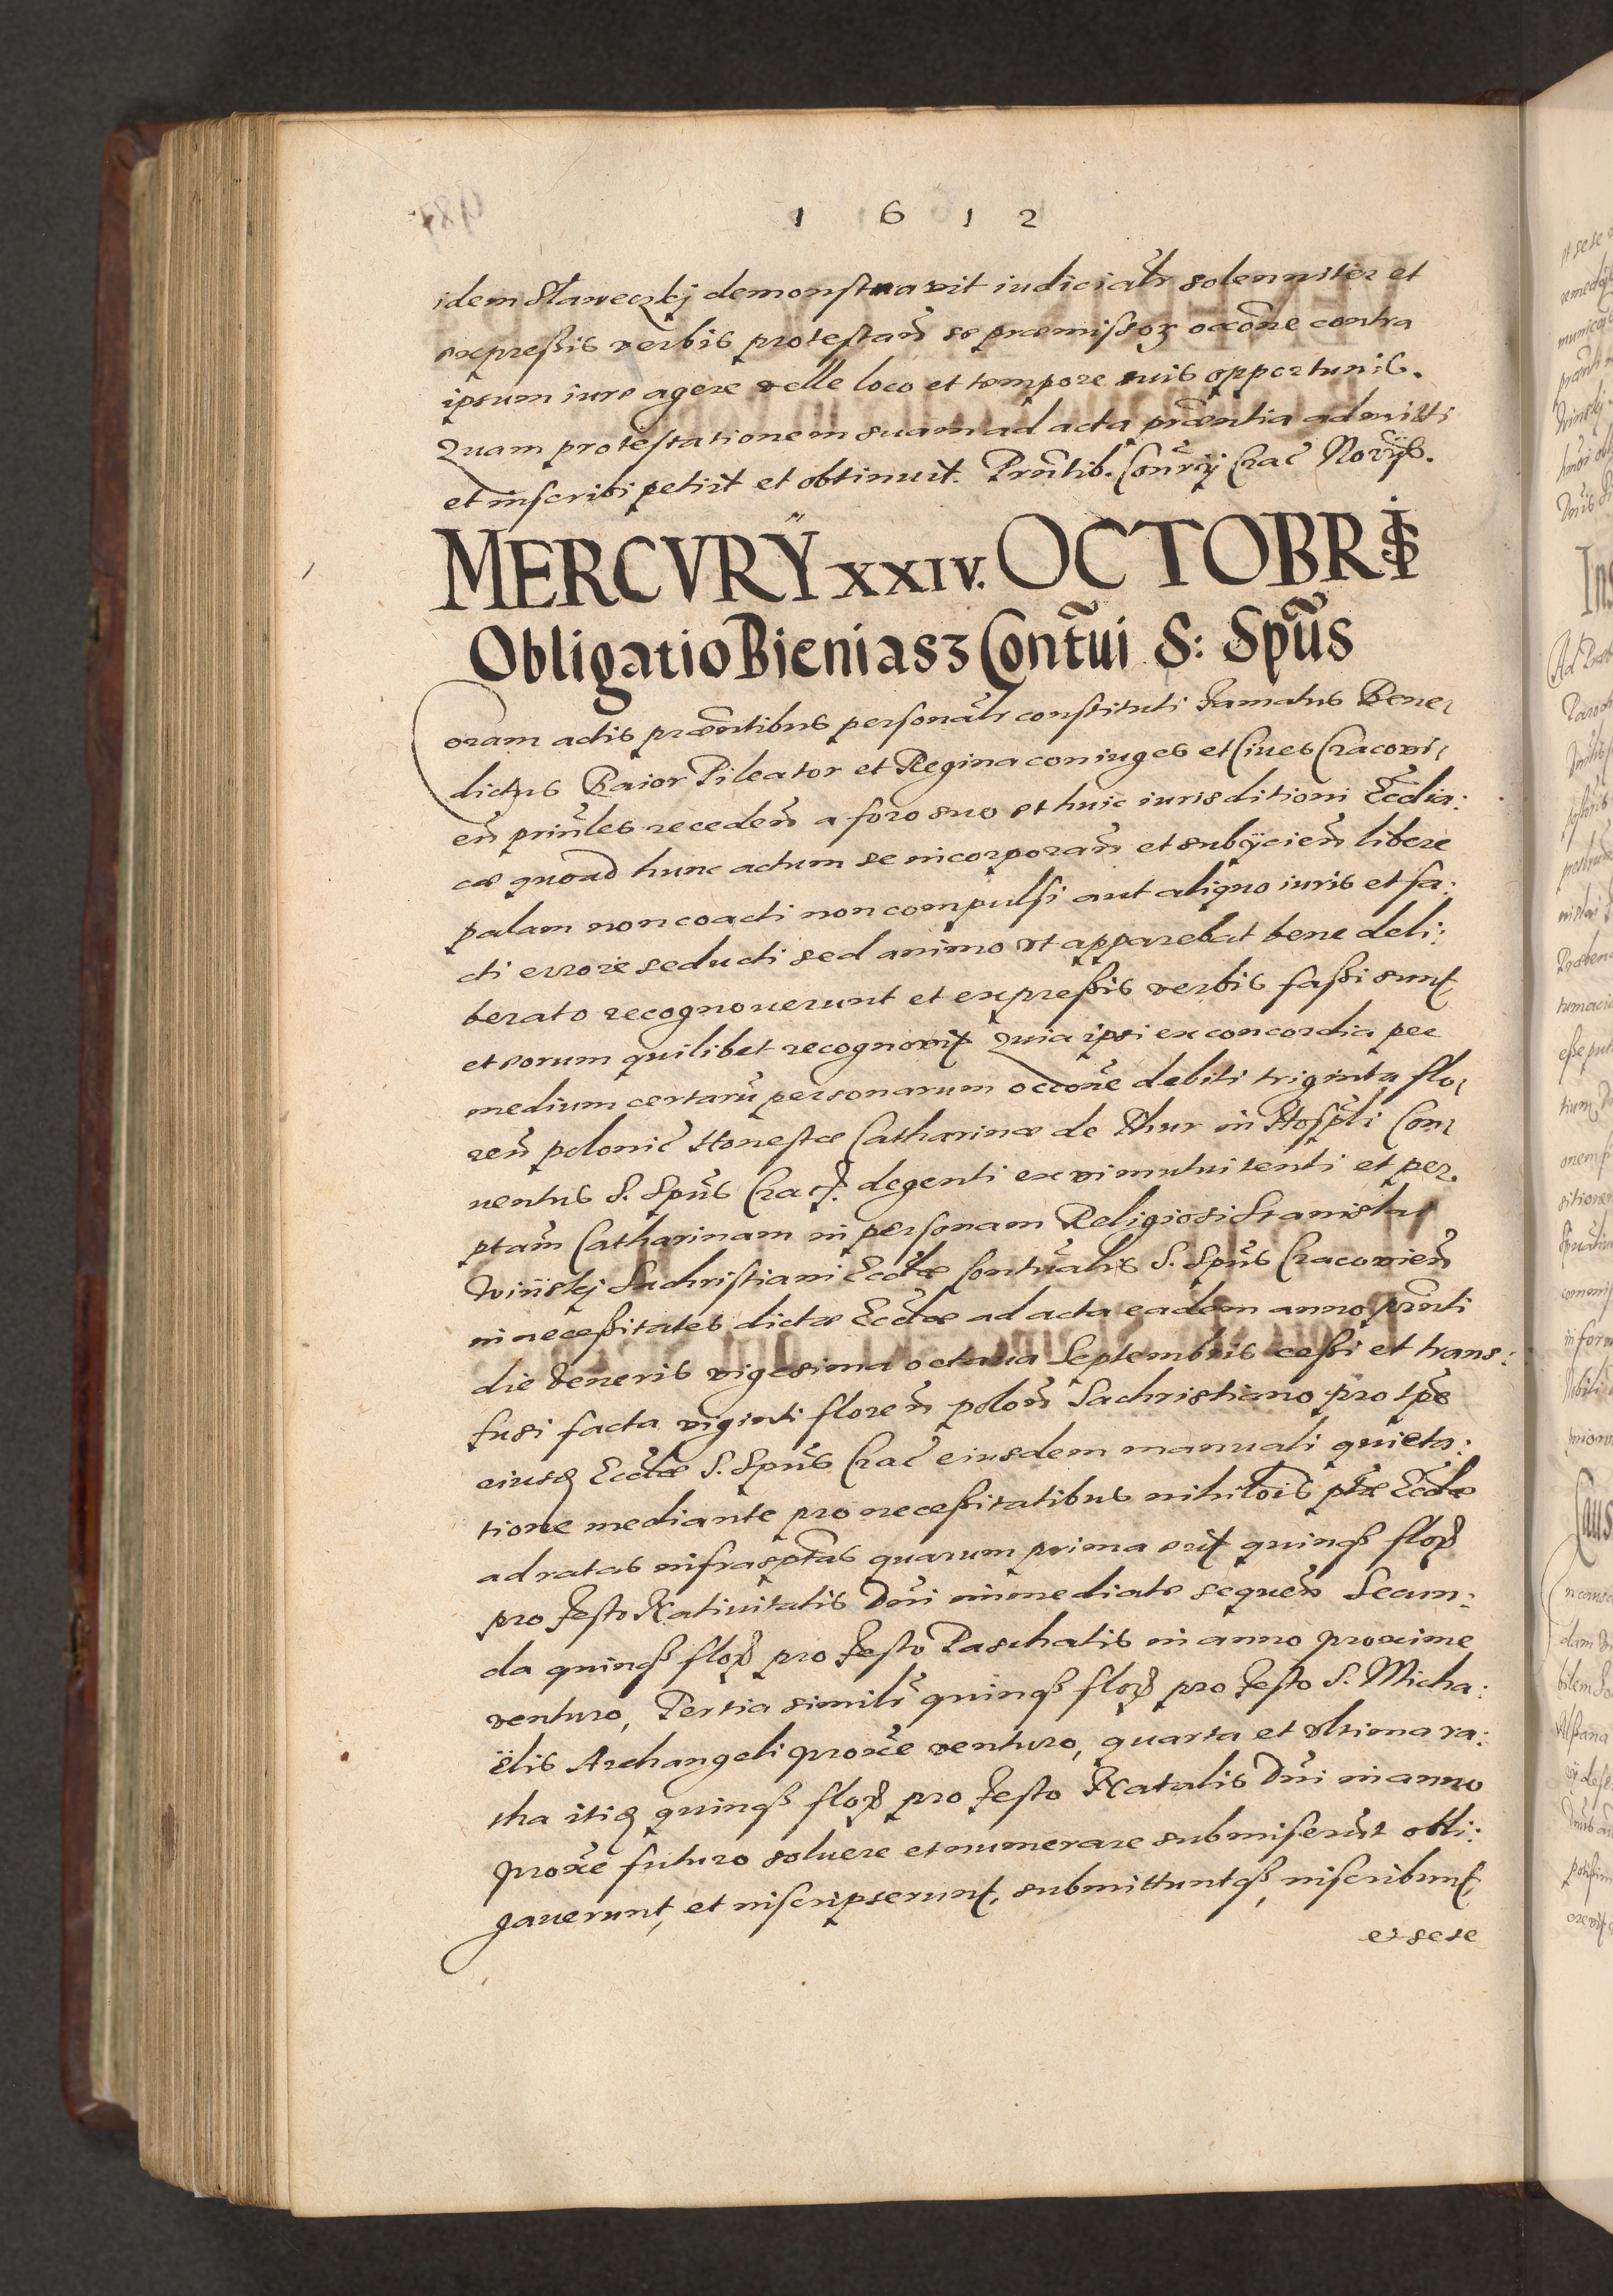 1 6 1 2
idem Slaweczkj demonstravit iudicialr̃ solenniter et
expreßis verbis protestañ se præmissorꝫ occõne contra
ipsum iure agere velle loco et tempore suis opportunis.
Quam protestationem suam ad acta præñtia admitti
et inscribi petiit et obtinuit. Prñtib. Coñrÿ Crac̃ No͠rÿs.
MERCVRŸ XXIV. OCTOBRIS
Obligatio Bieniasz Contũi S: Spũs
Coram actis præñtibus personalr̃ constituti Famatus Bene⸗
dictus Baior Pileator et Regina coniuges et Ciues Cracovi⸗
eñ priñles recedeñ a foro suo et huic iurisditioni Ecclia:
cæ quoad hunc actum se incorporañ et subÿcieñ libere
palam non coacti non compulsi aut aliquo iuris et fa:
cti errore seducti sed animo vt apparebat bene deli:
berato recognouerunt et expreßis verbis faßi sunt
et eorum quilibet recognovit Quia ipsi ex concordia per
medium certarũ personarum occõne debiti triginta flo⸗
reñ polonic̃ Honestæ Catharinæ de Thur in Hosp̃li Con⸗
uentus S. Spũs Crac̃. degenti ex vi mutui tenti et per
ptam̃ Catharinam in personam Religiosi Stanislai
Winskj Sachristiani Eccl̃æ Contũalis S. Spũs Cracovieñ
in neceßitates dictæ Eccl̃æ ad acta eadem anno prñti
die Veneris vigesima octaua Septembris ceßi et trans:
fusi facta viginti floreñ poloñ Sachristiano pro tp̃e
eiusd Eccl̃æ S. Spũs Crac̃ eiusdem manuali quieta:
tione mediante pro neceßitatibus nihilõis ptæ̃ Eccl̃æ
ad ratas infrasptãs quarum prima erit quinqꝫ flor
pro festo Natiuitatis Dñi immediate sequeñ Secun:
da quinqꝫ flor pro festo Paschatis in anno proxime
venturo, Tertia similr̃ quinqꝫ flor pro festo S. Micha:
ëlis Archangeli prox̃e venturo, quarta et vltima ra:
tha itid quinqꝫ flor pro festo Natalis Dñi in anno
prox̃e futuro soluere et numerare submiserũt obli:
gauerunt, et inscripserunt, submittuntqꝫ, inscribunt,
et sese